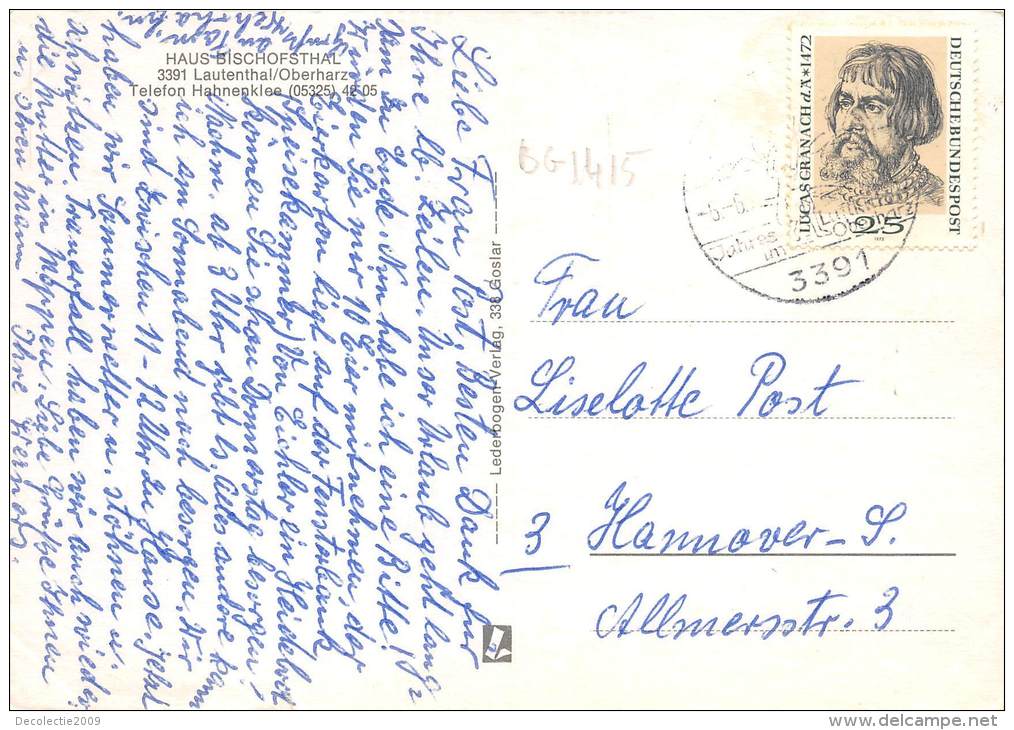 HAUS BISCHOFSTHAL
3391 Lautenthal/Oberharz
Telefon Hahnenklee (05325) 42 05
Liebe Frau Post, Besten Dank für
Ihre lb. Zeilen. Unser Urlaub geht lang-
sam zu Ende. Nun habe ich eine Bitte!
Würden Sie mir 10 Eier mitnehmen, der
Eierkarton liegt auf der Fensterbank
Speisekammer) Von Eichler ein Heidebrot
können Sie schon Donnerstag besorgen!
Nachm. ab 3 Uhr gibt es. Alles andere kann
ich am Sonnabend noch besorgen. Wir
sind zwischen 11-12 Uhr zu Hause. Jetzt
haben wir Sommerwetter u. stöhnen u.
schwitzen. Trauerfall haben wir auch wieder
die Mutter in Meppen. Liebe Grüße Ihnen
u. Ihren Mann Ihre
Lederbogen-Verlag, 338 Goslar
BG1415
DEUTSCHE BUNDESPOST
LUCAS CRANACH d.Ä. * 1472
25
1972
3391
Frau
Liselotte Post
3 Hannover-S.
Allmersstr. 3
Decolectie2009
www.delcampe.net